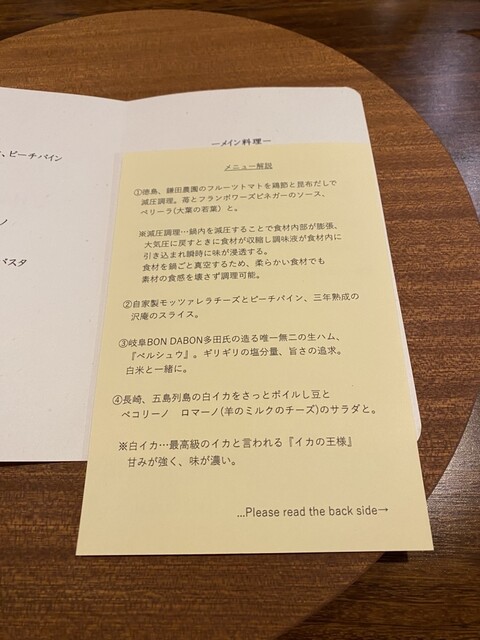 、ピーチパイン
ノ
パスタ
ーメイン料理ー
メニュー解説
①徳島、鎌田農園のフルーツトマトを鶏節と昆布だしで
減圧調理。苺とフランボワーズビネガーのソース、
ペリーラ(大葉の若葉）と。
※減圧調理…鍋内を減圧することで食材内部が膨張、
大気圧に戻すときに食材が収縮し調味液が食材内に
引き込まれ瞬時に味が浸透する。
食材を鍋ごと真空するため、柔らかい食材でも
素材の食感を壊さず調理可能。
②自家製モッツァレラチーズとピーチパイン、三年熟成の
沢庵のスライス。
③岐阜BON DABON多田氏の造る唯一無二の生ハム、
『ペルシュウ』。ギリギリの塩分量、旨さの追求。
白米と一緒に。
④長崎、五島列島の白イカをさっとボイルし豆と
ペコリーノ　ロマーノ(羊のミルクのチーズ)のサラダと。
※白イカ…最高級のイカと言われる『イカの王様』
甘みが強く、味が濃い。
...Please read the back side→